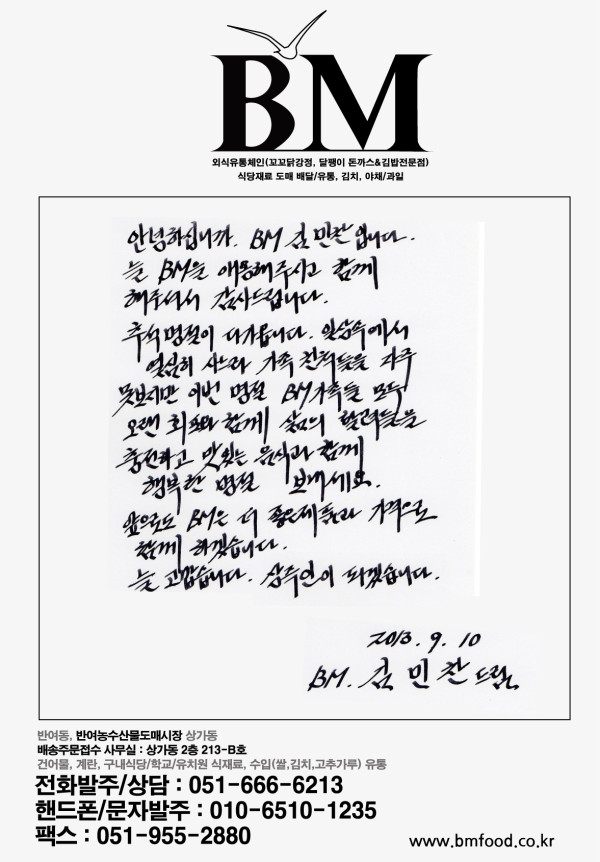 BM
외식유통체인(꼬꼬닭강정, 달팽이 돈까스&김밥전문점)
식당재료 도매 배달/유통, 김치, 야채/과일
안녕하십니까. BM 김민찬입니다.
늘 BM을 애용해주시고 함께
해주셔서 감사드립니다.
추석명절이 다가옵니다. 일상속에서
열심히 사느라 가족 친척들을 자주
못보지만 이번 명절 BM가족들 모두
오랜 회포와 함께 삶의 활력등을
충전하고 맛있는 음식과 함께
행복한 명절 보내세요.
앞으로도 BM은 더 좋은제품과 가격으로
함께 하겠습니다.
늘 고맙습니다. 상주인이 되겠습니다.
2013. 9. 10
BM. 김민찬 드림.
반여동, 반여농수산물도매시장 상가동
배송주문접수 사무실 : 상가동 2층 213-B호
건어물, 계란, 구내식당/학교/유치원 식재료, 수입(쌀,김치,고추가루) 유통
전화발주/상담 : 051-666-6213
핸드폰/문자발주 : 010-6510-1235
팩스 : 051-955-2880
www.bmfood.co.kr